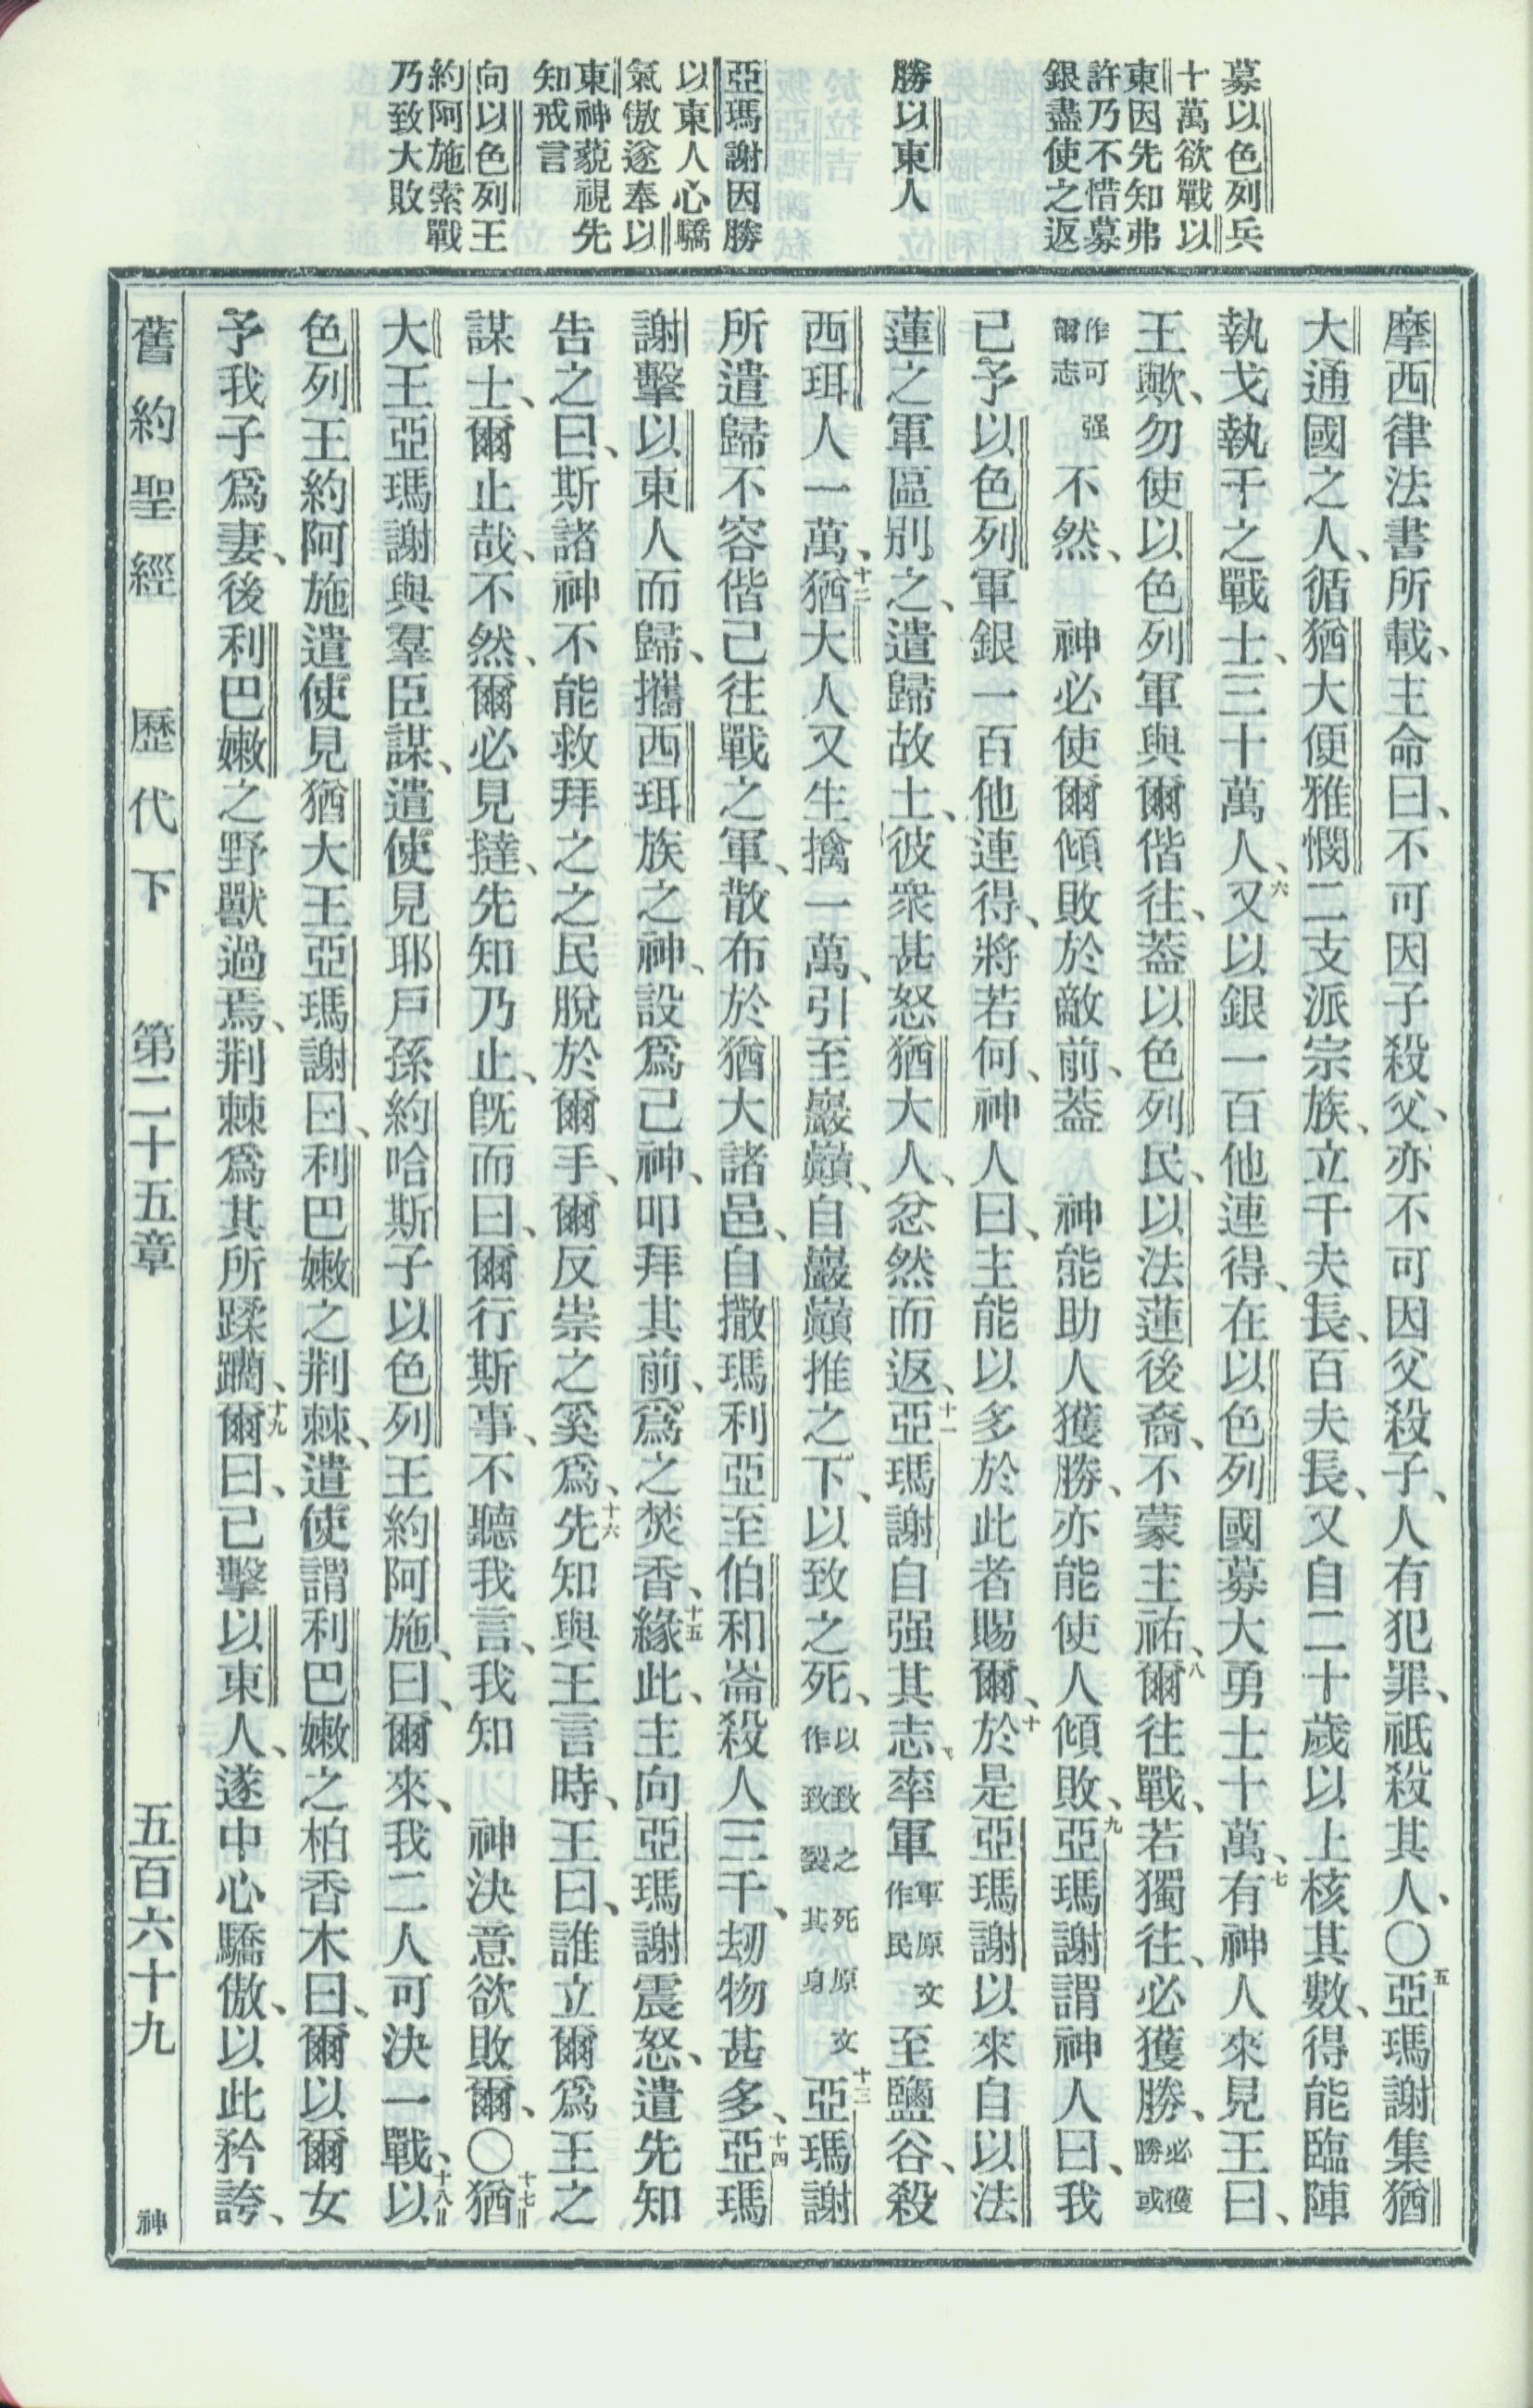 募以色列兵
十萬欲戰以
東因先知弗
許乃不惜募
銀盡使之返
勝以東人
亞瑪謝因勝
以東人心驕
氣傲遂奉以
東神藐視先
知戒言
向以色列王
約阿施索戰
乃致大敗
摩西律法書所載、主命曰、不可因子殺父、亦不可因父殺子、人有犯罪、祇殺其人、〇五亞瑪謝集猶
大通國之人、循猶大便雅憫二支派宗族、立千夫長、百夫長、又自二十歲以上核其數、得能臨陣
執戈執干之戰士、三十萬人、六又以銀一百他連得、在以色列國募大勇士十萬、七有神人來見王曰、
王歟、勿使以色列軍與爾偕往、蓋以色列民、以法蓮後裔、不蒙主祐、八爾往戰、若獨往、必獲勝、必獲勝或
作可强爾志 不然、 神必使爾傾敗於敵前、蓋 神能助人獲勝、亦能使人傾敗、九亞瑪謝謂神人曰、我
已予以色列軍銀一百他連得、將若何、神人曰、主能以多於此者賜爾、十於是亞瑪謝以來自以法
蓮之軍區別之、遣歸故土、彼衆甚怒猶大人、忿然而返、十一亞瑪謝自强其志、率軍軍原文作民至鹽谷、殺
西珥人一萬、十二猶大人又生擒一萬、引至巖巔、自巖巔推之下、以致之死、以致之死原文作致裂其身十三亞瑪謝
所遣歸不容偕己往戰之軍、散布於猶大諸邑、自撒瑪利亞至伯和崙殺人三千、刼物甚多、十四亞瑪
謝擊以東人而歸、攜西珥族之神、設爲己神、叩拜其前、爲之焚香、十五緣此、主向亞瑪謝震怒、遣先知
告之曰、斯諸神不能救拜之之民脫於爾手、爾反崇之奚爲、十六先知與王言時、王曰、誰立爾爲王之
謀士、爾止哉、不然、爾必見撻、先知乃止、旣而曰、爾行斯事、不聽我言、我知 神決意欲敗爾、〇十七猶
大王亞瑪謝與羣臣謀、遣使見耶戶孫約哈斯子以色列王約阿施、曰、爾來、我二人可決一戰、十八以
色列王約阿施遣使見猶大王亞瑪謝曰、利巴嫩之荆棘、遣使謂利巴嫩之柏香木曰、爾以爾女
予我子爲妻、後利巴嫩之野獸過焉、荆棘爲其所蹂躪、十九爾曰、已擊以東人、遂中心驕傲、以此矜誇、
舊約聖經 歷代下 第二十五章 五百六十九 神